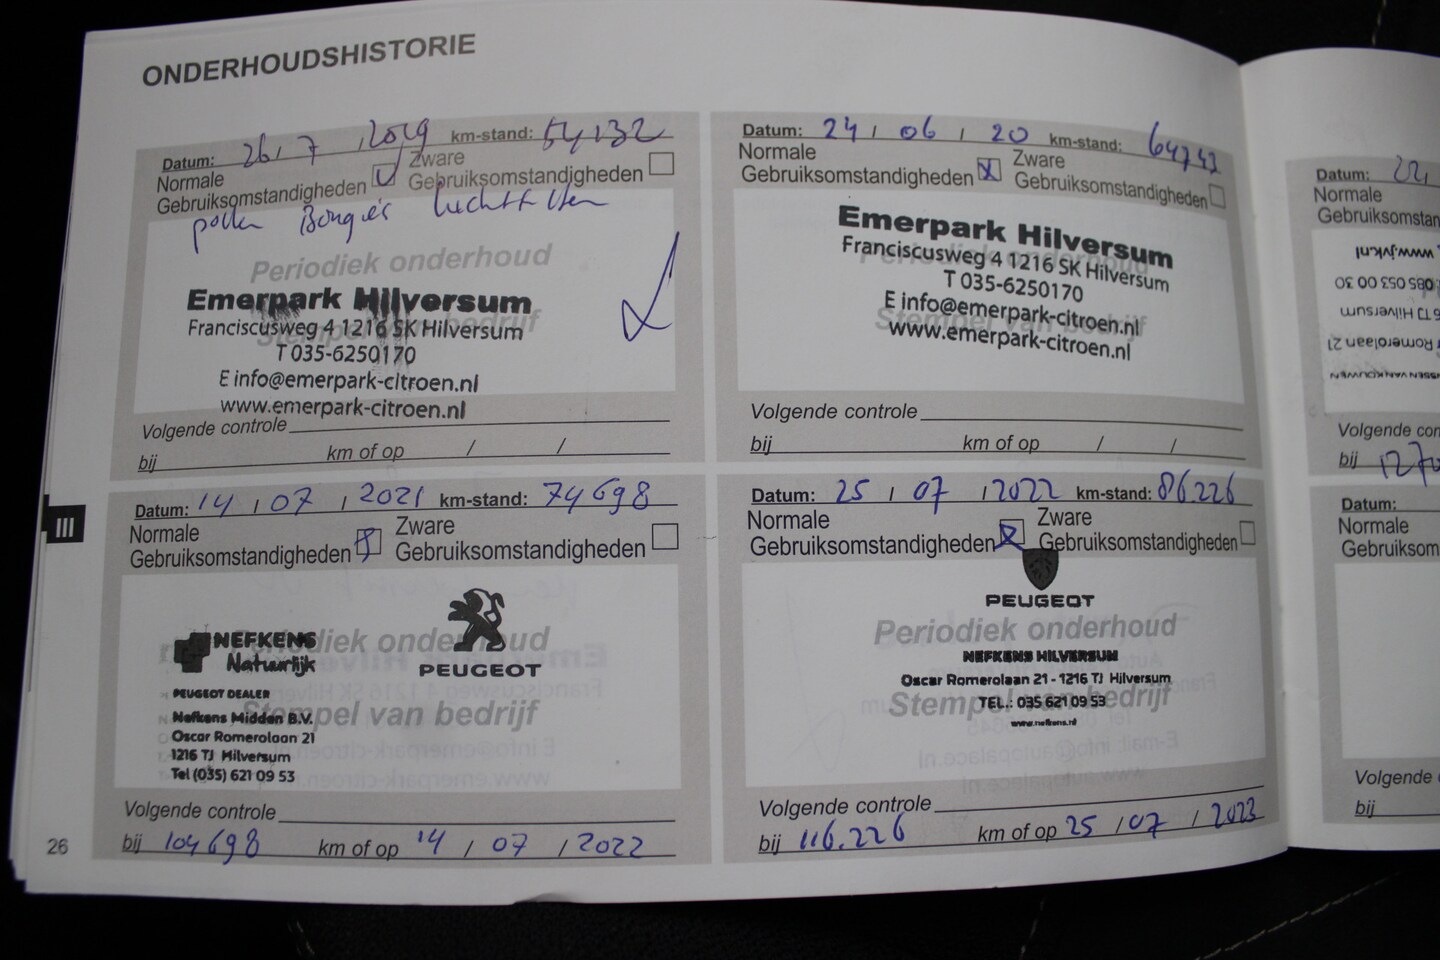 ONDERHOUDSHISTORIE
Datum: 26 / 7 / 2019 km-stand: 54132
Normale
Gebruiksomstandigheden
Zware
Gebruiksomstandigheden
pollen Bougies luchtfilter
Periodiek onderhoud
Stempel van bedrijf
Emerpark Hilversum
Franciscusweg 4 1216 SK Hilversum
T 035-6250170
E info@emerpark-citroen.nl
www.emerpark-citroen.nl
Volgende controle
bij km of op / /
Datum: 24 / 06 / 20 km-stand: 64742
Normale
Gebruiksomstandigheden
Zware
Gebruiksomstandigheden
Periodiek onderhoud
Stempel van bedrijf
Emerpark Hilversum
Franciscusweg 4 1216 SK Hilversum
T 035-6250170
E info@emerpark-citroen.nl
www.emerpark-citroen.nl
Volgende controle
bij km of op / /
III
Datum: 14 / 07 / 2021 km-stand: 74698
Normale
Gebruiksomstandigheden
Zware
Gebruiksomstandigheden
Periodiek onderhoud
Stempel van bedrijf
NEFKENS
Natuurlijk
PEUGEOT
PEUGEOT DEALER
Nefkens Midden B.V.
Oscar Romerolaan 21
1216 TJ Hilversum
Tel (035) 621 09 53
Volgende controle
bij 104698 km of op 14 / 07 / 2022
Datum: 25 / 07 / 2022 km-stand: 86.226
Normale
Gebruiksomstandigheden
Zware
Gebruiksomstandigheden
PEUGEOT
Periodiek onderhoud
Stempel van bedrijf
NEFKENS HILVERSUM
Oscar Romerolaan 21 - 1216 TJ Hilversum
TEL.: 035 621 09 53
www.nefkens.nl
Volgende controle
bij 116.226 km of op 25 / 07 / 2023
26
Datum: 22,
Normale
Gebruiksomstan
www.jvk.nl
085 053 00 30
6 TJ Hilversum
Romerolaan 21
JANSSEN VAN KOUWEN
Volgende con
bij
Datum:
Normale
Gebruiksom
Volgende
bij